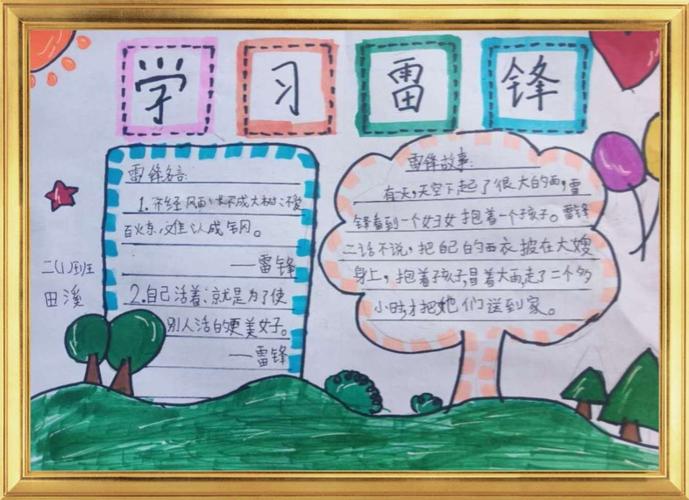 学习雷锋
雷锋名言:
1.不经风雨,长不成大树;不受
百炼,难以成钢。
——雷锋
2.自己活着,就是为了使
别人活的更美好。
——雷锋
二(1)班
田溪
雷锋故事:
有天,天空下起了很大的雨,雷
锋看到一个妇女抱着一个孩子。雷锋
二话不说,把自己的雨衣披在大嫂
身上,抱着孩子,冒着大雨走了二个多
小时,才把她们送到家。